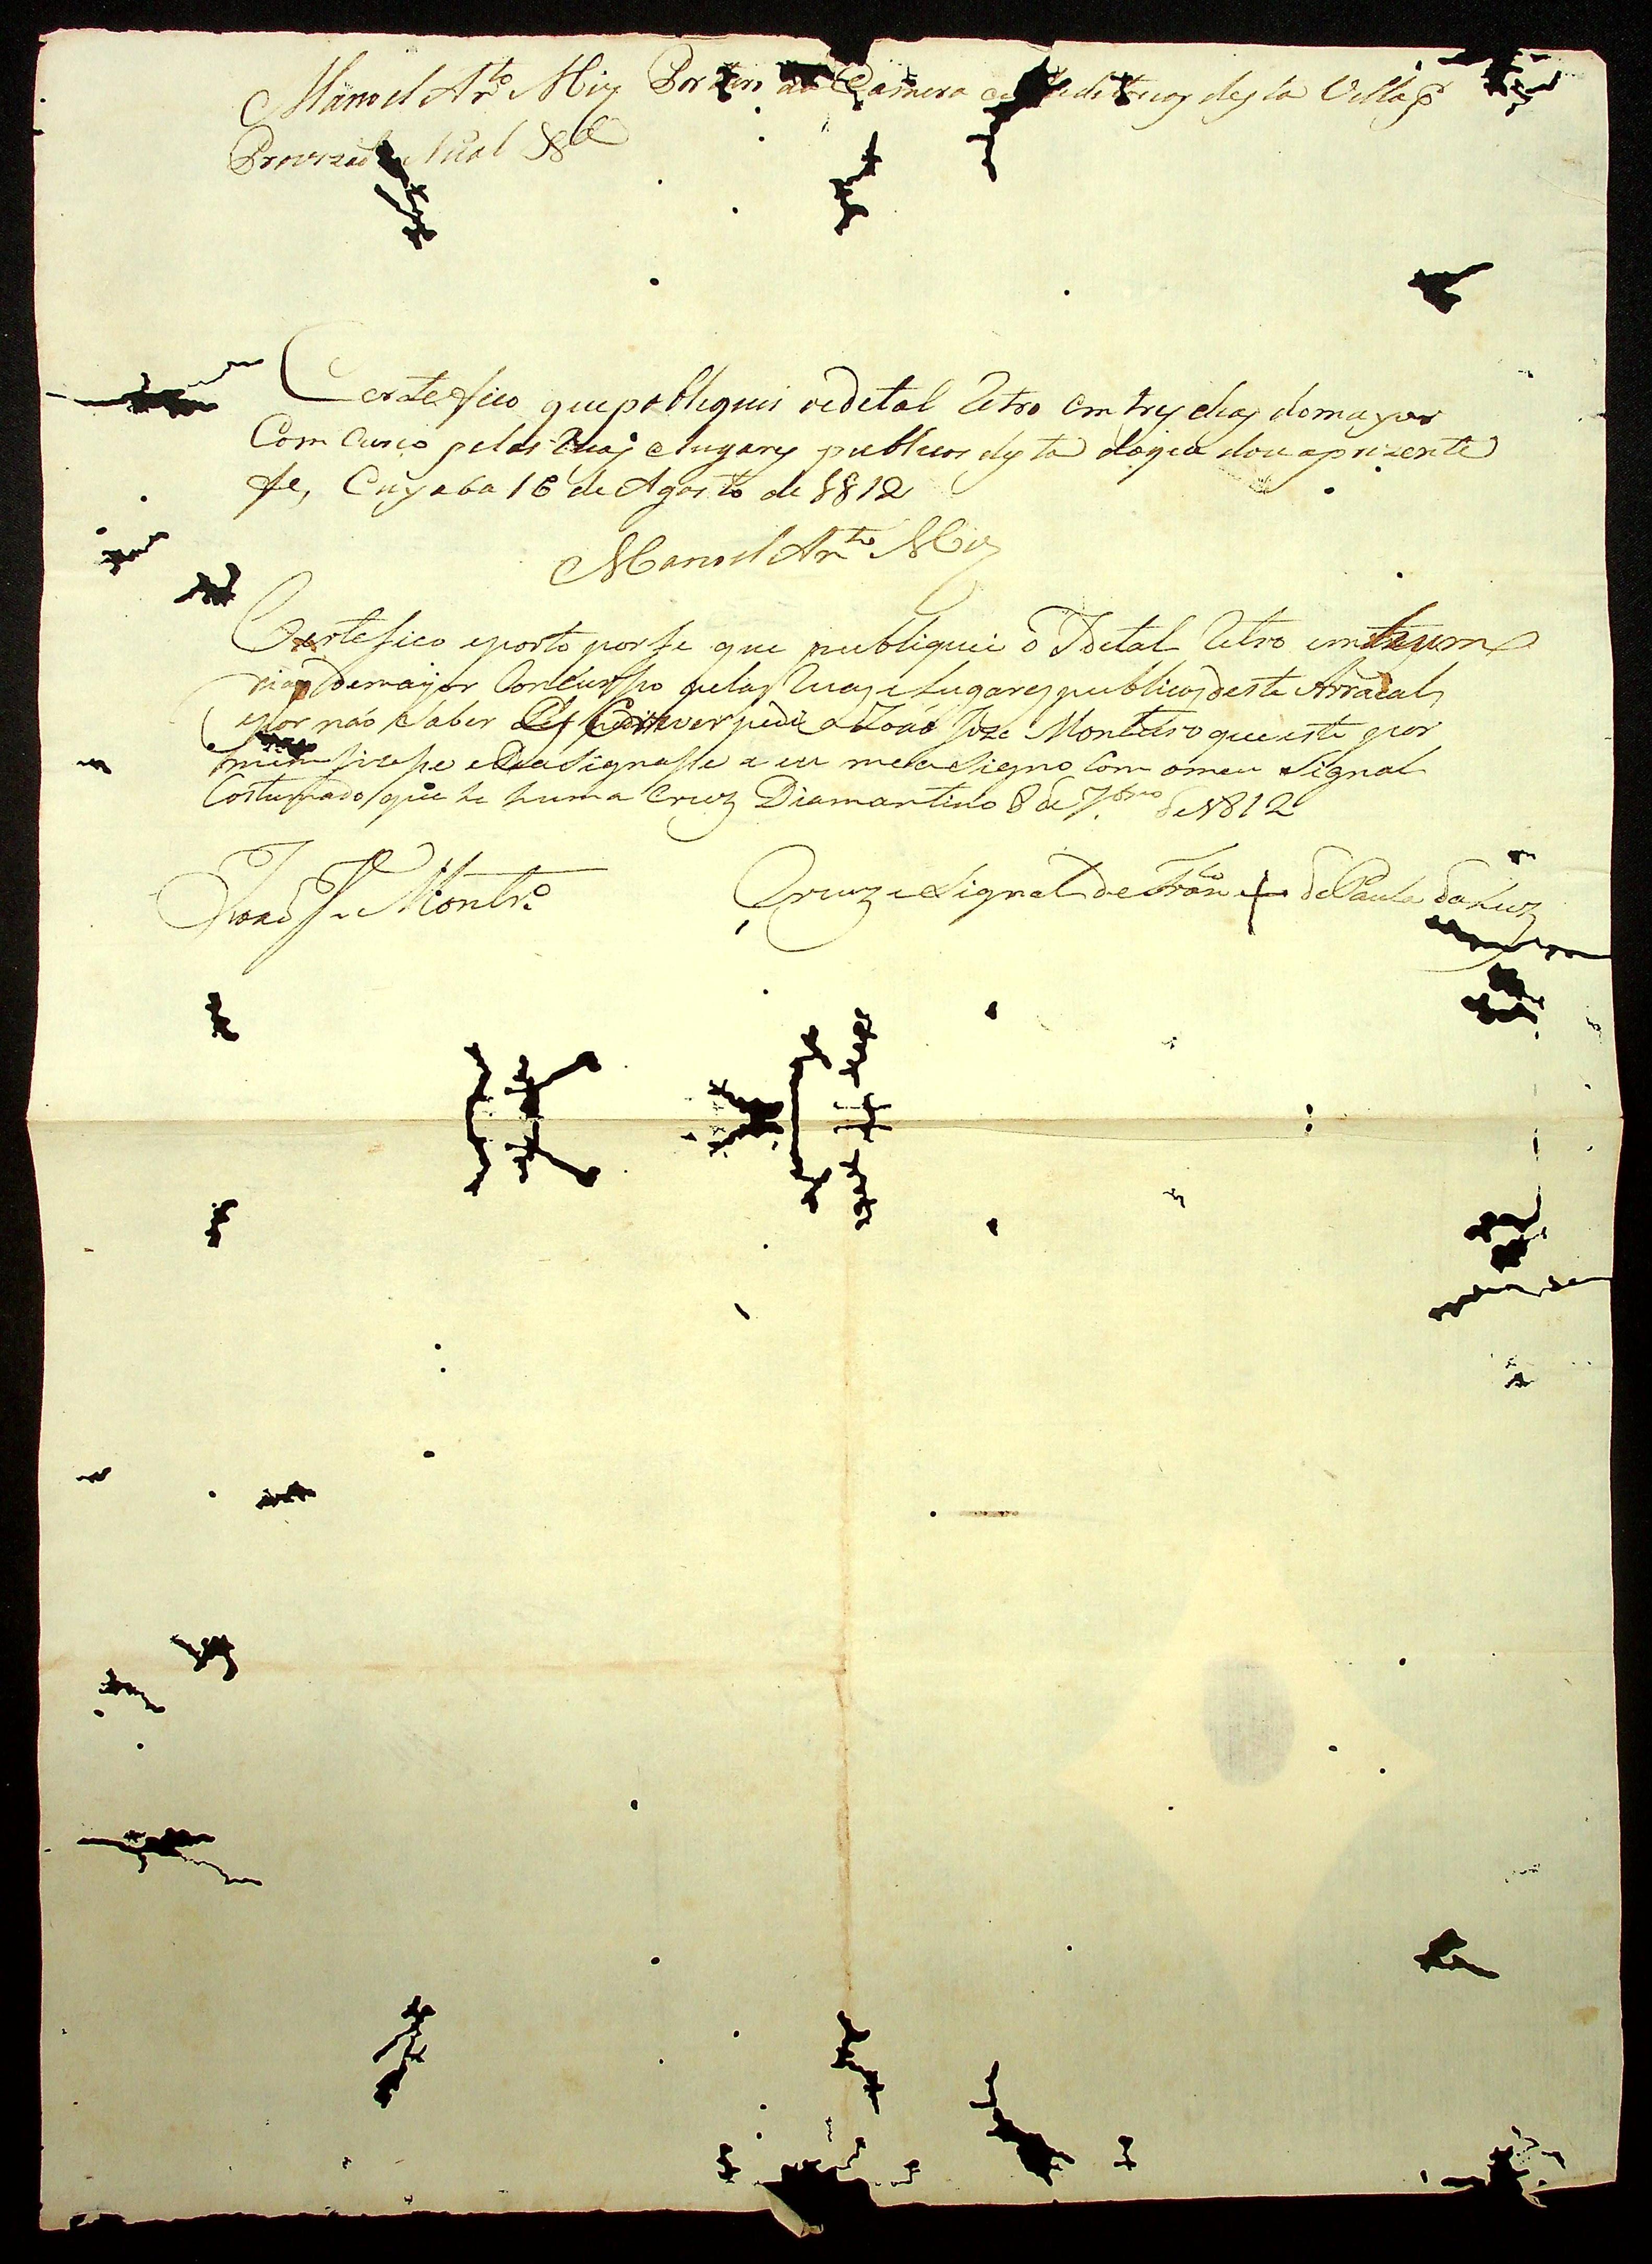 Manoel An.to Miz Porteiro da Camera e Auditorios desta Villa p.r
Provizaõ Actual &.a
Certefico que publiquei o Edital Retro em trez dias do mayor
Com Curso pelas Ruas e lugares publicos desta doque dou a prizente
fe, Cuyaba 16 de Agosto de 1812
Manoel An.to Miz
Certefico e porto por fe que publiquei o Idetal Retro em
dias de maior Concurso pelas Ruas e Lugares publicos deste Arraeal,
e por naõ Saber Ler Escrever pedi a Joaõ Joze Monteiro que este por
mim fizesse e Se asignasse e eu me asigno Com o meu Signal
Costumado que he huma Cruz Diamantino 8 de 7.bro de 1812
Joaõ J.e Montr.o
Cruz e Signal de Fran.co + de Paula da Luz